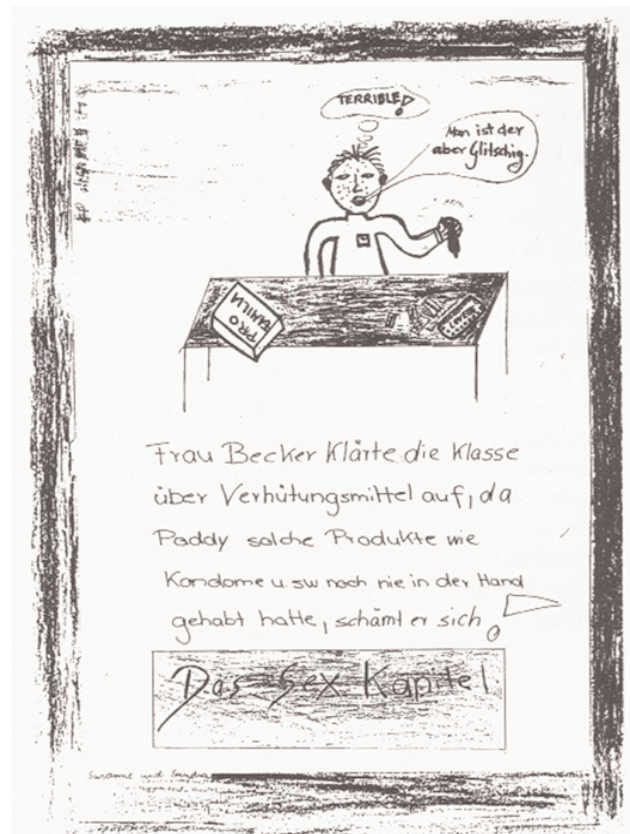 TERRIBLE!
Man ist der
aber Glitschig.
PRO
FAMILIA
Frau Becker Klärte die Klasse
über Verhütungsmittel auf, da
Paddy solche Produkte wie
Kondome u.sw noch nie in der Hand
gehabt hatte, schämt er sich!
Das Sex Kapitel
Susanne und Sandra